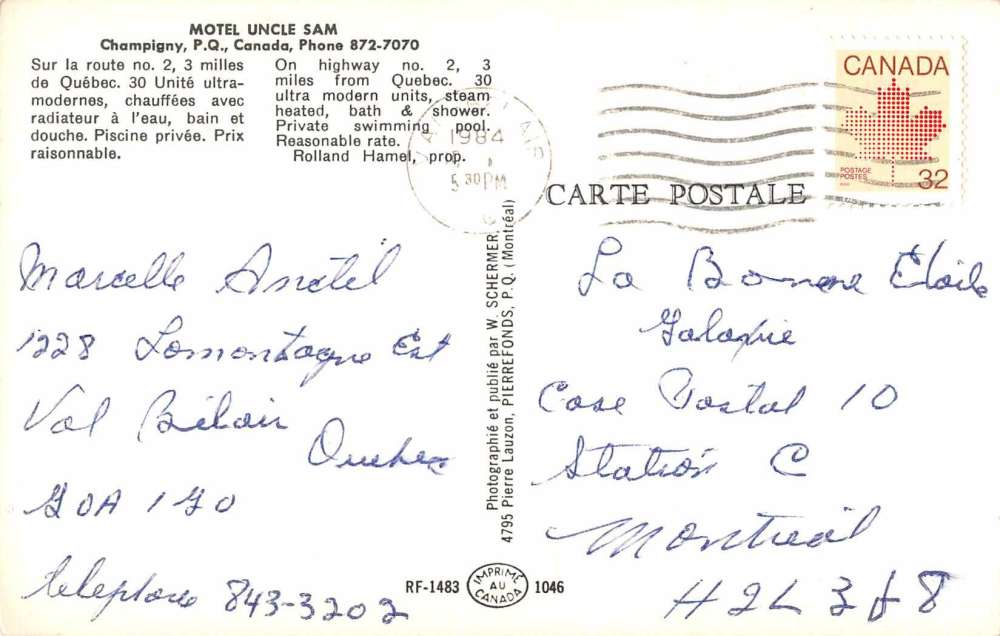 MOTEL UNCLE SAM
Champigny, P.Q., Canada, Phone 872-7070
Sur la route no. 2, 3 milles
de Québec. 30 Unité ultra-
modernes, chauffées avec
radiateur à l'eau, bain et
douche. Piscine privée. Prix
raisonnable.
On highway no. 2, 3
miles from Quebec. 30
ultra modern units, steam
heated, bath & shower.
Private swimming pool.
Reasonable rate.
Rolland Hamel, prop.
1984
5 30 PM
CANADA
POSTAGE
POSTES
32
CARTE POSTALE
Marcelle
1228 Lamontagne Est
Val Bélair
Quebec
G0A 1G0
telephone 843-3202
Photographié et publié par W. SCHERMER,
4795 Pierre Lauzon, PIERREFONDS, P.Q. (Montréal)
La Bonne Etoile
Galaxie
Case Postal 10
Station C
Montréal
H2L 3J8
RF-1483
IMPRIMÉ
AU
CANADA
1046